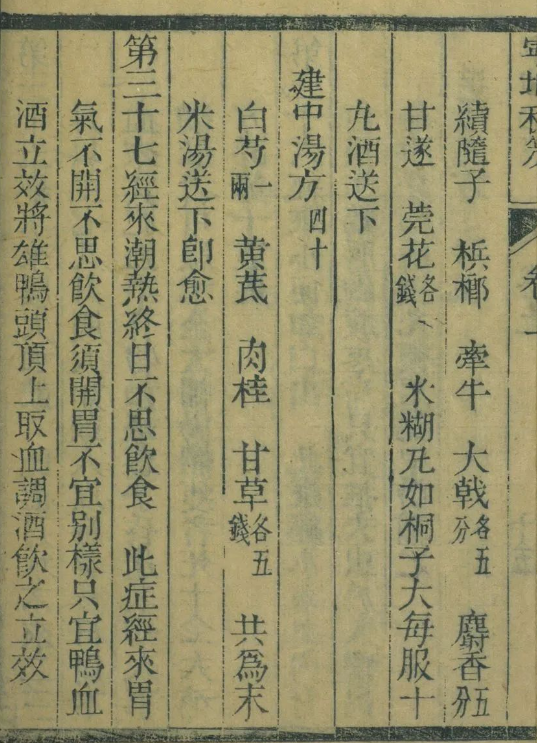 續隨子　梹榔　牽牛　大戟各五分　麝香五分
甘遂　莞花各錢　水糊丸如桐子大每服十
丸酒送下
建中湯方　四十
白芍一兩　黃芪　肉桂　甘草各五錢　共爲末
米湯送下卽愈
第三十七經來潮熱終日不思飲食　此症經來胃
氣不開不思飲食須開胃不宜别樣只宜鴨血
酒立效將雄鴨頭頂上取血調酒飲之立效